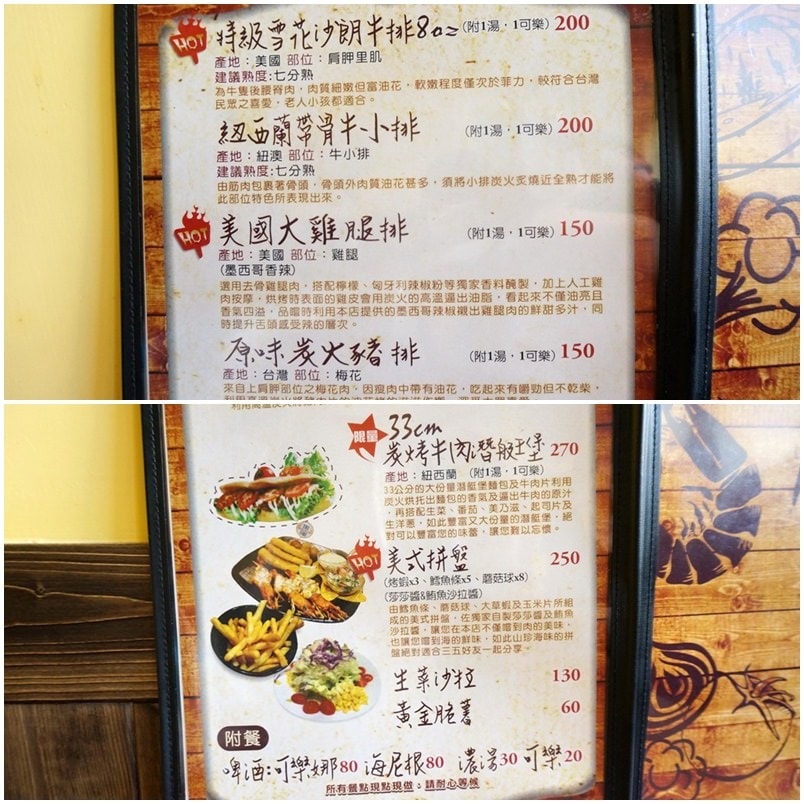 HOT 特級雪花沙朗牛排8oz (附1湯，1可樂) 200
產地：美國 部位：肩胛里肌
建議熟度:七分熟
為牛隻後腰脊肉，肉質細嫩但富油花，軟嫩程度僅次於菲力，較符合台灣
民眾之喜愛，老人小孩都適合。
紐西蘭帶骨牛小排 (附1湯，1可樂) 200
產地：紐澳 部位：牛小排
建議熟度:七分熟
由筋肉包裹著骨頭，骨頭外肉質油花甚多，須將小排炭火炙燒近全熟才能將
此部位特色所表現出來。
HOT 美國大雞腿排 (附1湯，1可樂) 150
產地：美國 部位：雞腿
(墨西哥香辣)
選用去骨雞腿肉，搭配檸檬、匈牙利辣椒粉等獨家香料醃製，加上人工雞
肉按摩，烘烤時表面的雞皮會用炭火的高溫逼出油脂，看起來不僅油亮且
香氣四溢，品嚐時利用本店提供的墨西哥辣椒襯出雞腿肉的鮮甜多汁，同
時提升舌頭感受辣的層次。
原味炭火豬排 (附1湯，1可樂) 150
產地：台灣 部位：梅花
來自上肩胛部位之梅花肉，因瘦肉中帶有油花，吃起來有嚼勁但不乾柴，
限量 33cm
炭烤牛肉潛艇堡 270
產地：紐西蘭 (附1湯，1可樂)
33公分的大份量潛艇堡麵包及牛肉片利用
炭火烘托出麵包的香氣及逼出牛肉的原汁
，再搭配生菜、番茄、美乃滋、起司片及
生洋蔥，如此豐富又大份量的潛艇堡，絕
對可以豐富您的味蕾，讓您難以忘懷。
HOT 美式拼盤 250
(烤蝦x3、鱈魚條x5、蘑菇球x8)
(莎莎醬&鮪魚沙拉醬)
由鱈魚條、蘑菇球、大草蝦及玉米片所組
成的美式拼盤，佐獨家自製莎莎醬及鮪魚
沙拉醬，讓您在本店不僅嚐到肉的美味，
也讓您嚐到海的鮮味，如此山珍海味的拼
盤絕對適合三五好友一起分享。
生菜沙拉 130
黃金脆薯 60
附餐
啤酒:可樂娜80 海尼根80 濃湯30 可樂20
所有餐點現點現做，請耐心等候